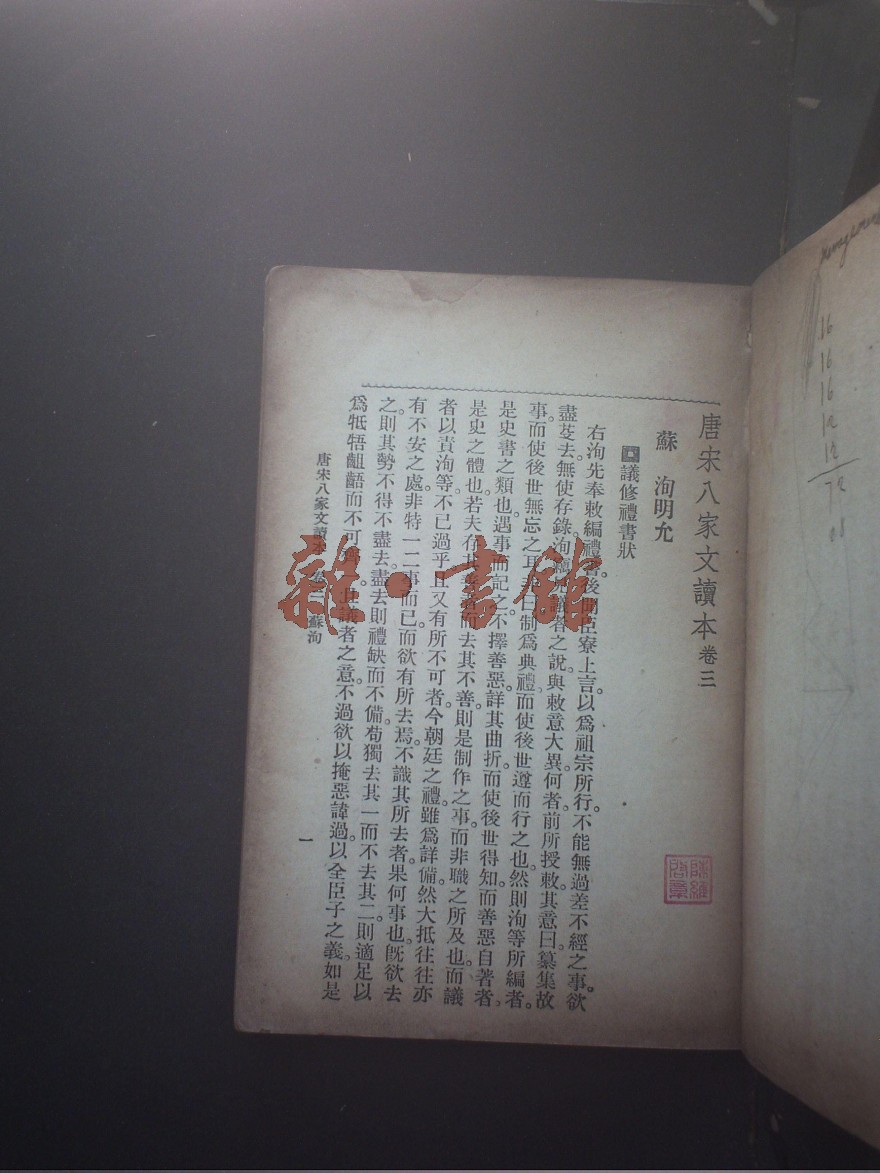 唐宋八家文讀本 卷三
蘇 洵明允
議修禮書狀
右洵先奉敕編禮書。後聞臣寮上言。以爲祖宗所行。不能無過差不經之事。欲
盡芟去。無使存錄。洵 議者之說。與敕意大異。何者。前所授敕。其意曰。纂集故
事。而使後世無忘之耳。 曰制爲典禮。而使後世遵而行之也。然則洵等所編者。
是史書之類也。遇事而記之。不擇善惡。詳其曲折。而使後世得知。而善惡自著者。
是史之體也。若夫存其善者。而去其不善。則是制作之事。而非職之所及也。而議
者以責洵等。不已過乎。且又有所不可者。今朝廷之禮。雖爲詳備。然大抵往往亦
有不安之處。非特一二事而已。而欲有所去焉。不識其所去者。果何事也。既欲去
之。則其勢不得不盡去。盡去則禮缺而不備。苟獨去其一。而不去其二。則適足以
爲牴牾齟齬而不可 。 議者之意。不過欲以掩惡諱過。以全臣子之義。如是
唐宋八家文讀本 卷三 蘇洵
一
16
16
16
12
12
72
雜·書館